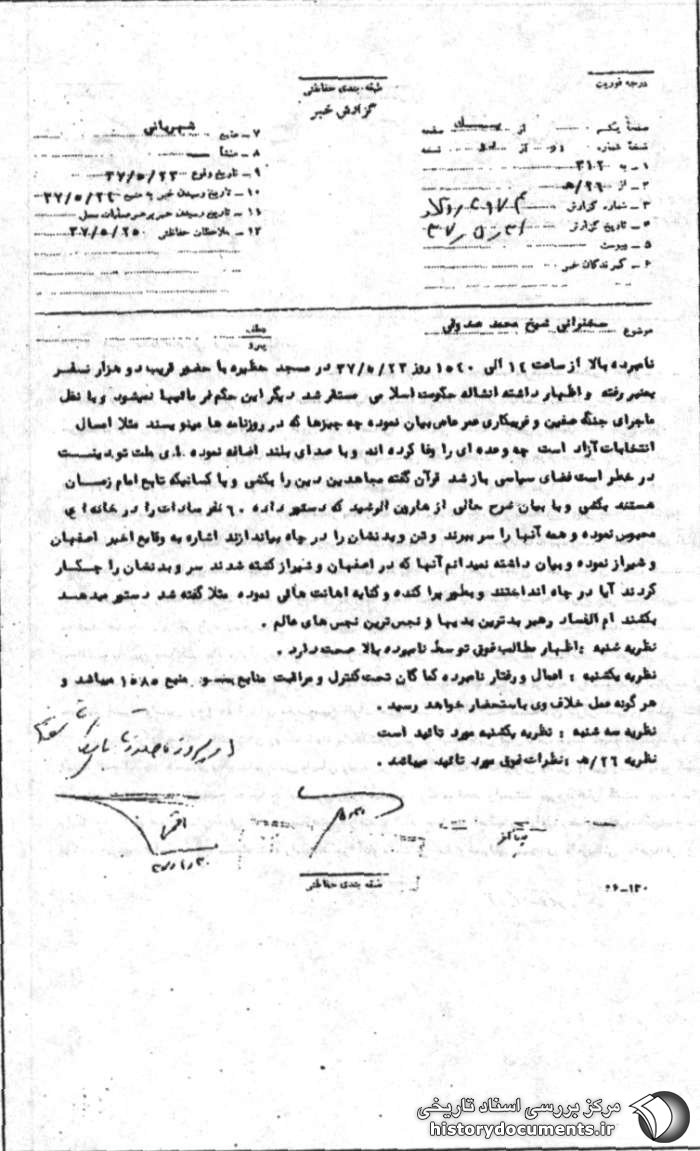 طبقه بندی حفاظتی
گزارش خبر
درجه فوریت
صفحه یک از یک صفحه
نسخه شماره از نسخه
۱ـ به ۳۱۲
۲ـ از ۲۶/ﻫ
۳ـ شماره گزارش
۴ـ تاریخ گزارش
۵ـ پیوست
۶ـ گیرندگان خبر
۷ـ منبع شهربانی
۸ـ منشأ
۹ـ تاریخ وقوع ۳۷/۵/۲۳
۱۰ـ تاریخ رسیدن خبر به منبع ۳۷/۵/۲۴
۱۱ـ تاریخ رسیدن خبر به رهبر عملیات محل
۱۲ـ ملاحظات حفاظتی ۳۷/۵/۲۵۰
موضوع سخنرانی شیخ محمد صدوقی
عطف
پیرو
نامبرده بالا از ساعت ۱۴ الی ۱۵۴۰ روز ۳۷/۵/۲۳ در مسجد حظیره با حضور قریب دو هزار نفر
بمنبر رفته و اظهار داشته انشاله حکومت اسلامی مستقر شد دیگر این حکم فرمائیها نمیشود و با نقل
ماجرای جنگ صفین و فریبکاری عمر عاص بیان نموده چه چیزها که در روزنامه ها مینویسند مثلا امسال
انتخابات آزاد است چه وعده ای را وفا کرده اند و با صدای بلند اضافه نموده ای ملت تو دینست
در خطر است فضای سیاسی باز شد قرآن گفته مجاهدین دین را بکشی و یا کسانیکه تابع امام زمان
هستند بکشی و با بیان شرح حالی از هارون الرشید که دستور داده ۶۰ نفر سادات را در خانه ای
محبوس نموده و همه آنها را سر ببرند و تن و بدنشان را در چاه بیاندازند اشاره به وقایع اخیر اصفهان
و شیراز نموده و بیان داشته نمیدانم آنها که در اصفهان و شیراز کشته شدند سر و بدنشان را چکار
کردند آیا در چاه انداختند و بطور پراکنده و کنایه اهانت هائی نموده مثلا گفته شد دستور میدهد
بکشند ام الفساد رهبر بدترین بدیها و نجس ترین نجس های عالم .
نظریه شنبه : اظهار مطالب فوق توسط نامبرده بالا صحت دارد .
نظریه یکشنبه : اعمال و رفتار نامبرده کماکان تحت کنترل و مراقبت منابع منبع ۱۵۸۵ میباشد و
هرگونه عمل خلاف وی باستحضار خواهد رسید .
نظریه سه شنبه : نظریه یکشنبه مورد تائید است
نظریه ۲۶/ﻫ : نظرات فوق مورد تائید میباشد .
طبقه بندی حفاظتی
مرکز بررسی اسناد تاریخی
historydocuments.ir